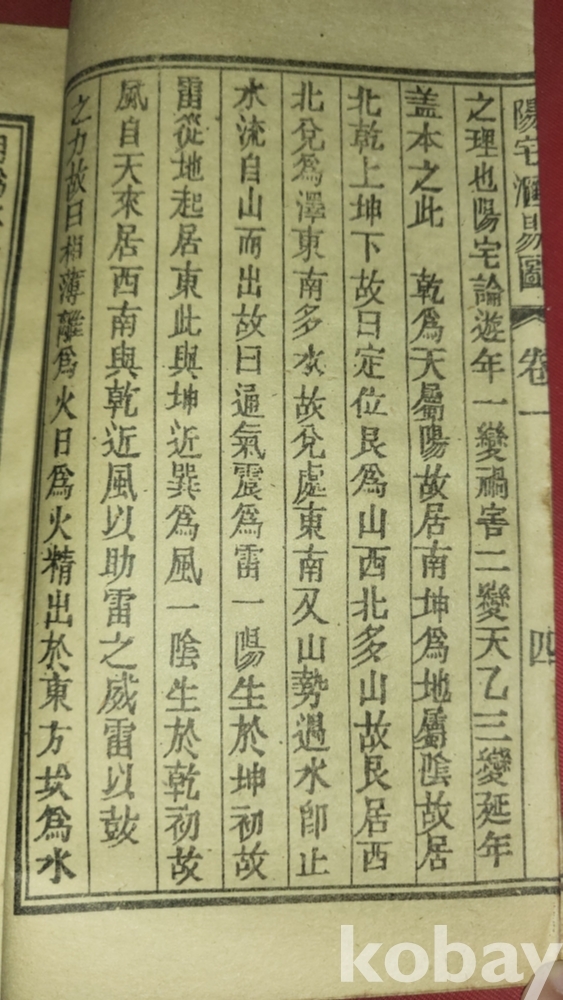 陽宅滙易圖 卷一 四
之理也陽宅論遊年一變禍害二變天乙三變延年
盖本之此 乾爲天屬陽故居南坤爲地屬陰故居
北乾上坤下故曰定位艮爲山西北多山故艮居西
北兌爲澤東南多水故兌處東南又山勢遇水卽止
水流自山而出故曰通氣震爲雷一陽生於坤初故
雷從地起居東北與坤近巽爲風一陰生於乾初故
風自天來居西南與乾近風以助雷之威雷以鼓
之力故曰相薄離爲火日爲火精出於東方坎爲水
kobay